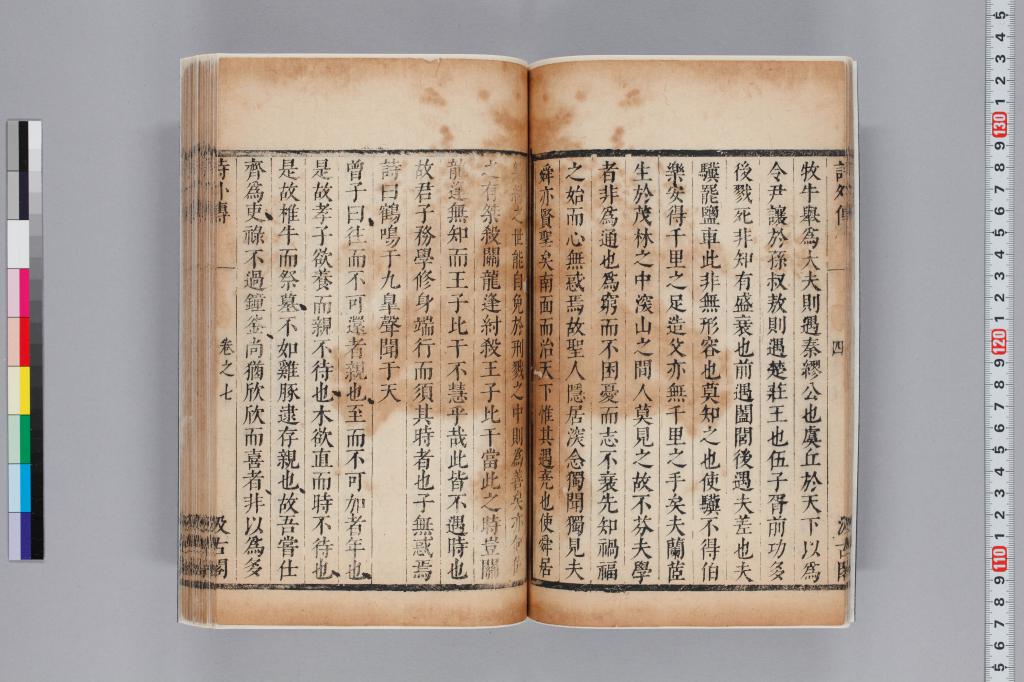 詩外傳 四 汲古閣
牧牛舉爲大夫則遇秦繆公也虞丘於天下以爲
令尹讓於孫叔敖則遇楚莊王也伍子胥前功多
後戮死非知有盛衰也前遇闔閭後遇夫差也夫
驥罷鹽車此非無形容也莫知之也使驥不得伯
樂安得千里之足造父亦無千里之手矣夫蘭茝
生於茂林之中深山之間人莫見之故不芬夫學
者非爲通也爲窮而不困憂而志不衰先知禍福
之始而心無惑焉故聖人隱居深念獨聞獨見夫
舜亦賢聖矣南面而治天下惟其遇堯也使舜居
桀紂之世能自免於刑戮之中則爲善矣亦何位
之有桀殺關龍逢紂殺王子比干當此之時豈關
龍逢無知而王子比干不慧乎哉此皆不遇時也
故君子務學修身端行而須其時者也子無惑焉
詩曰鶴鳴于九皐聲聞于天
曾子曰往而不可還者親也至而不可加者年也
是故孝子欲養而親不待也木欲直而時不待也
是故椎牛而祭墓不如雞豚逮存親也故吾嘗仕
齊爲吏祿不過鐘釜尚猶欣欣而喜者非以爲多
詩外傳 卷之七 汲古閣